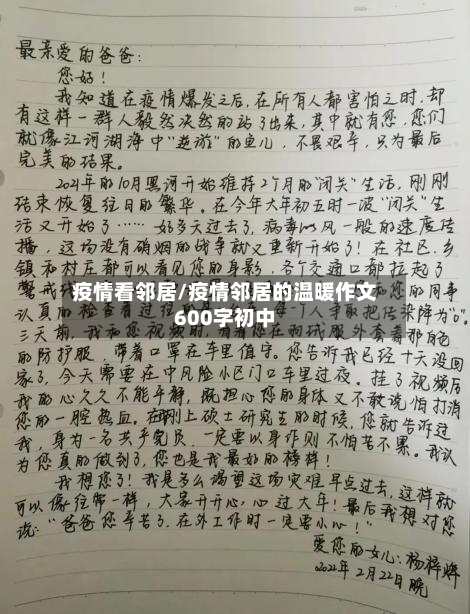 最亲爱的爸爸：
您好！
我知道在疫情爆发之后，在所有人都害怕之时，却
有这样一群人毅然决然的站了出来，其中就有您，您们
就像江河湖海中“逆游”的鱼儿，不畏艰辛，只为最后
完美的结果。
2021年的10月黑河开始维持2个月的“闭关”生活，刚刚
结束恢复往日的繁华。在今年大年初五时一波“闭关”生
活又开始了……好多天过去了，病毒以风一般的速度传
播，这场没有硝烟的战争就又重新开始了！在社区、乡
镇和村庄都可以看见您的身影，各个交通口都拉起了
疫情看邻居/疫情邻居的温暖作文
600字初中
三天前，我和您视频时，看着您在羽绒服外套着那白色
的防护服，带着口罩在车里值守。您告诉我已经十天没回
家了，今天需要在中风险小区门口车里过夜。挂了视频后
我的心久久不能平静，既担心您的身体又不敢说怕打消
您的一腔热血。在刚上硕士研究生的时候，您就告诉过
我，身为一名共产党员，一定要以身作则不怕苦不累。我认
为您真的做到了，您也是我最好的榜样！
我想您了！我是多么渴望这场灾难早点过去，这样就
可以像往常一样，大家开开心心过大年！最后我想对您
说：“爸爸您辛苦了，在外工作时一定要小心！”
爱您的女儿：杨梓
2022年2月22日晚